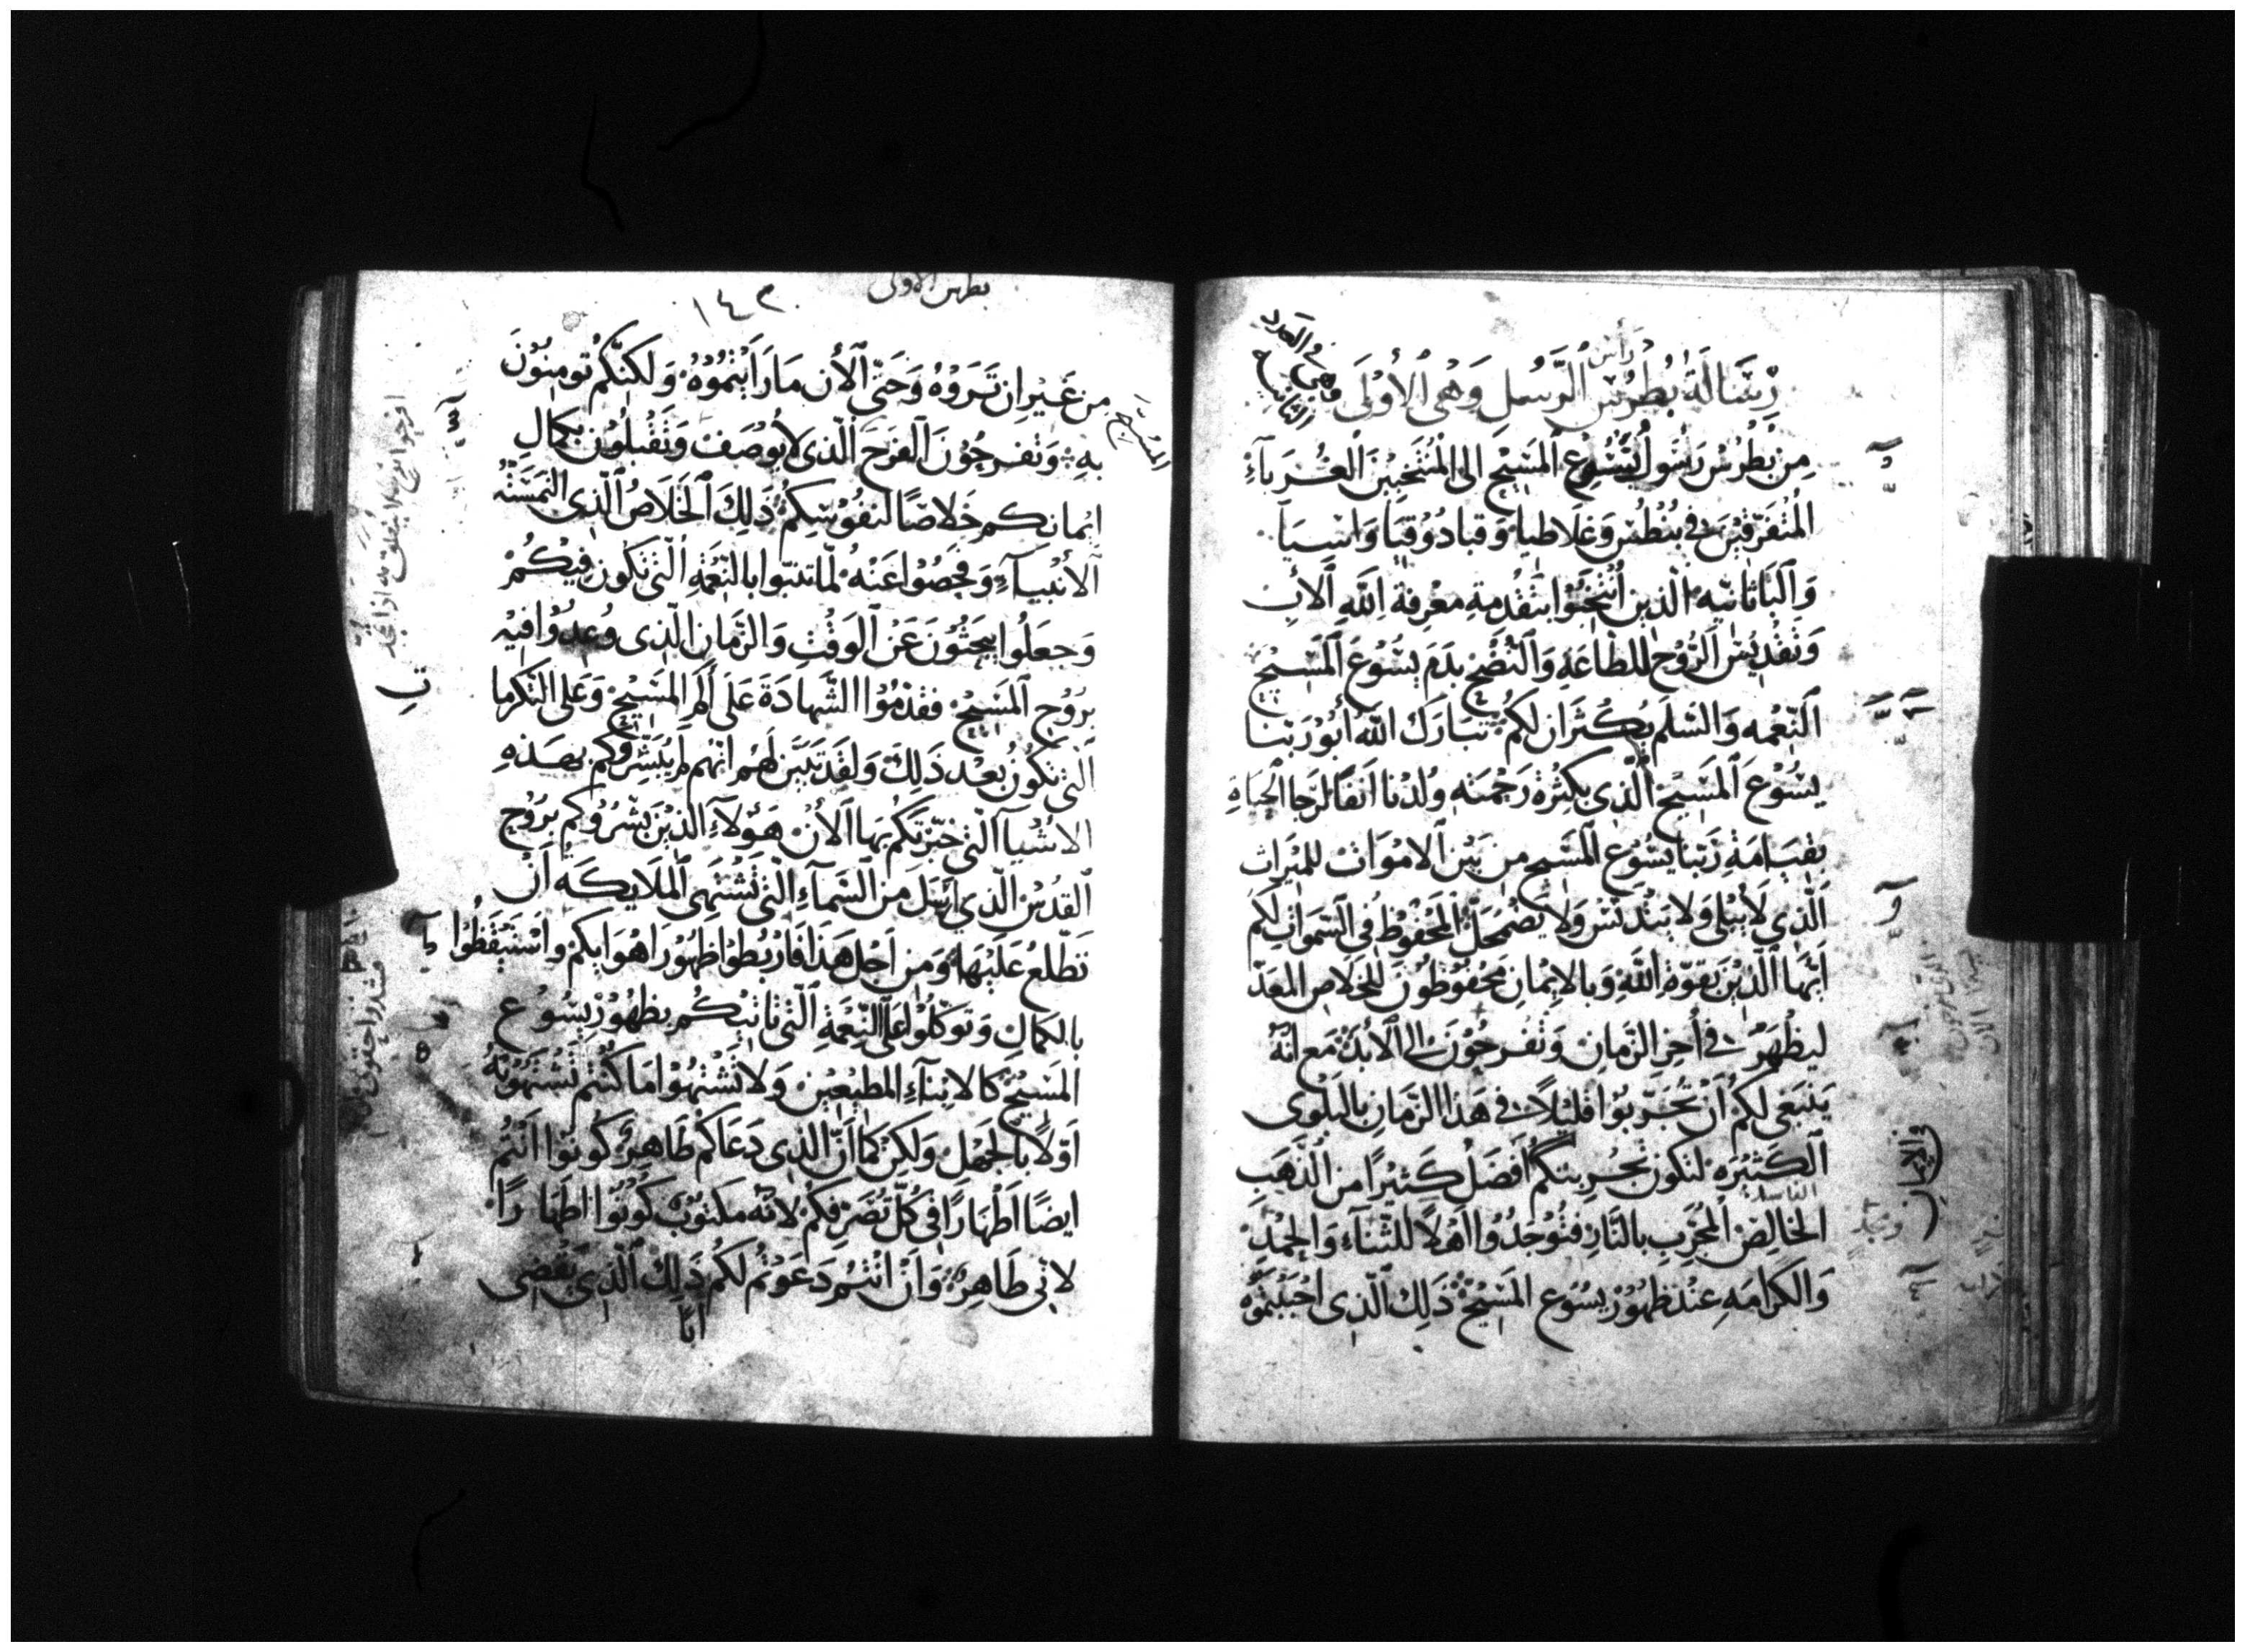 رِسَالَة بُطرُس رأس الرَّسُل وَهى الأولَى
وهي في العدد الثانيه
مِن بُطرُس رَسُول يَسُوع المَسِيح الى المُنتَخبِينَ الغُرَبآءِ
المُتفَرّقينَ في بُنطُس وَغلاطيا وَقبادُوقيَا وَاسِيَا
وَالبَاثانيّه الذين أُنتُخِبُوا بتَقدُمة معْرِفة اللهِ الأَبِ
وَتقْديس الرُّوح للطاعَةِ وَالنُضْحِ بدَمِ يسُوعَ المَسِيحِ
النِّعْمه وَالسّلَم يكثرَان لكُم تبَارَك الله أبُو رَبّنا
يسُوعَ المَسِيح الَّذى بكثرة رَحْمته وُلدْنا اَنفًا لرَجا الحَيَاهِ
بقيَامَةِ رَبّنا يسُوع المسَيح من بَيْن الاموَات للميْراث
الَّذي لاَ يبْلى وَلا يَتدَنّسْ وَلا يَضْمَحِلّ المَحْفُوظ في السّمَواتِ لكُم
اَيّهَا الَّذِيْنَ بقوّةِ اللهِ وَبالاِيْمانِ مَحفُوظُونَ للخَلاَصِ المُعَدّ
ليَظْهَرَ في أَخِر الزّمانِ وَتفْرحُوْنَ الى الأبَد مَع انّهُ
يَنبَغى لكُم أنْ تجَرّبوُا قليْلاً في هَذا الزّمَانِ بالبَلْوى
الكَثيْرَه لتكون تجْرِبتكُم أَفضَلُ كَثيْرًا من الذّهَبِ
في الإيمان
الخالِصْ المُجَرّبِ بالنّارِ فتُوْجَدُوا اَهْلاً للثنَآءِ وَالحَمْدِ
وَالكَرامَهِ عنْدَ ظهُوْرِ يسُوع المَسِيْح ذَلِك الَّذى احْبَبْتمُوْه
بطرس الاولى
١٤٣
من غَيْر ان تَرَوْهُ وَحَتّى الأن مَا رَاَيْتمُوْهُ وَلكِنّكُم تُومنُوْنَ
بهِ وَتفرحُوْنَ الفرَحَ الّذى لا يُوصَف وَتقْبلُوْن بكمَالِ
ايمانكم خَلاصًا لنفُوْسِكُم ذَلِكَ الخَلاَصُ الَّذى التمَسَتْهُ
الأنْبيَآءِ وَفحَصُوا عَنْهُ لمّا تنبّوا بالنّعْمَةِ الَّتى تكُون فيْكُم
وَجَعَلُوا يبحَثُوْنَ عَن الوَقْتِ وَالزّمَانِ الَّذى وُعِدُوْا فيْه
برُوْحِ المَسِيْح فقدّمُوْا الشّهَادَةَ عَلى اَلَمِ المَسِيْح وَعَلى التّكرما
الّتى تكُونُ بعْد ذَلِكَ وَلقَد تبَيّنَ لهُم انّهُم لم يُبَشّرُوكم بهَذهِ
الاشْيَآ الّتى خبّرْتكُم بهَا الأن هَؤلآءِ الّذيْنَ بشّرُوْكم برُوْحِ
القدُسْ الّذي اُرْسلَ منَ السّمآءِ الّتى تشْتهى المَلايكَه اَنْ
تَطّلعُ عَليْهَا وَمِن اَجْل هَذا فارْبُطوا ظهُوْرَ اهْوَايكُم واسْتيْقظُوا
بالكمَالِ وَتوَكّلُوْا عَلَى النّعْمَةِ الّتى تاتيْكُم بظهُوْر يسُوع
المَسِيْح كالابنآءِ المطيْعيْن وَلا تشْتهُوْا مَا كُنتُم تشْتهُوْنَهُ
اَوّلاً بالجَهْل وَلكِن كمَا اَنّ الَّذى دَعَاكم طَاهِر كُونُوا اَنْتُم
ايضًا اَطْهَارًا في كُلّ تصَرّفكُم لانّه مَكتُوْبٌ كُونُوْا اطهَارًا
لانّى طَاهِر وَاَنْ انْتُم دَعَوْتُم لكُم ذَلِك الَّذي يَقْضِى
اَبًا